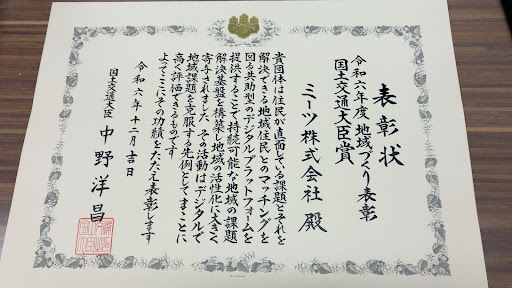 表彰状
令和六年度 地域づくり表彰
国土交通大臣賞
ミーツ株式会社 殿
貴団体は住民が直面している課題とそれを
解決できる地域住民とのマッチングを
図る共助型のデジタルプラットフォームを
提供することで持続可能な地域の課題
解決基盤を構築し地域の活性化に大きく
寄与されました その活動はデジタルで
地域課題を克服する先例としてまことに
高く評価できるものです
よってここにその功績をたたえ表彰します
令和六年十二月吉日
国土交通大臣 中野洋昌